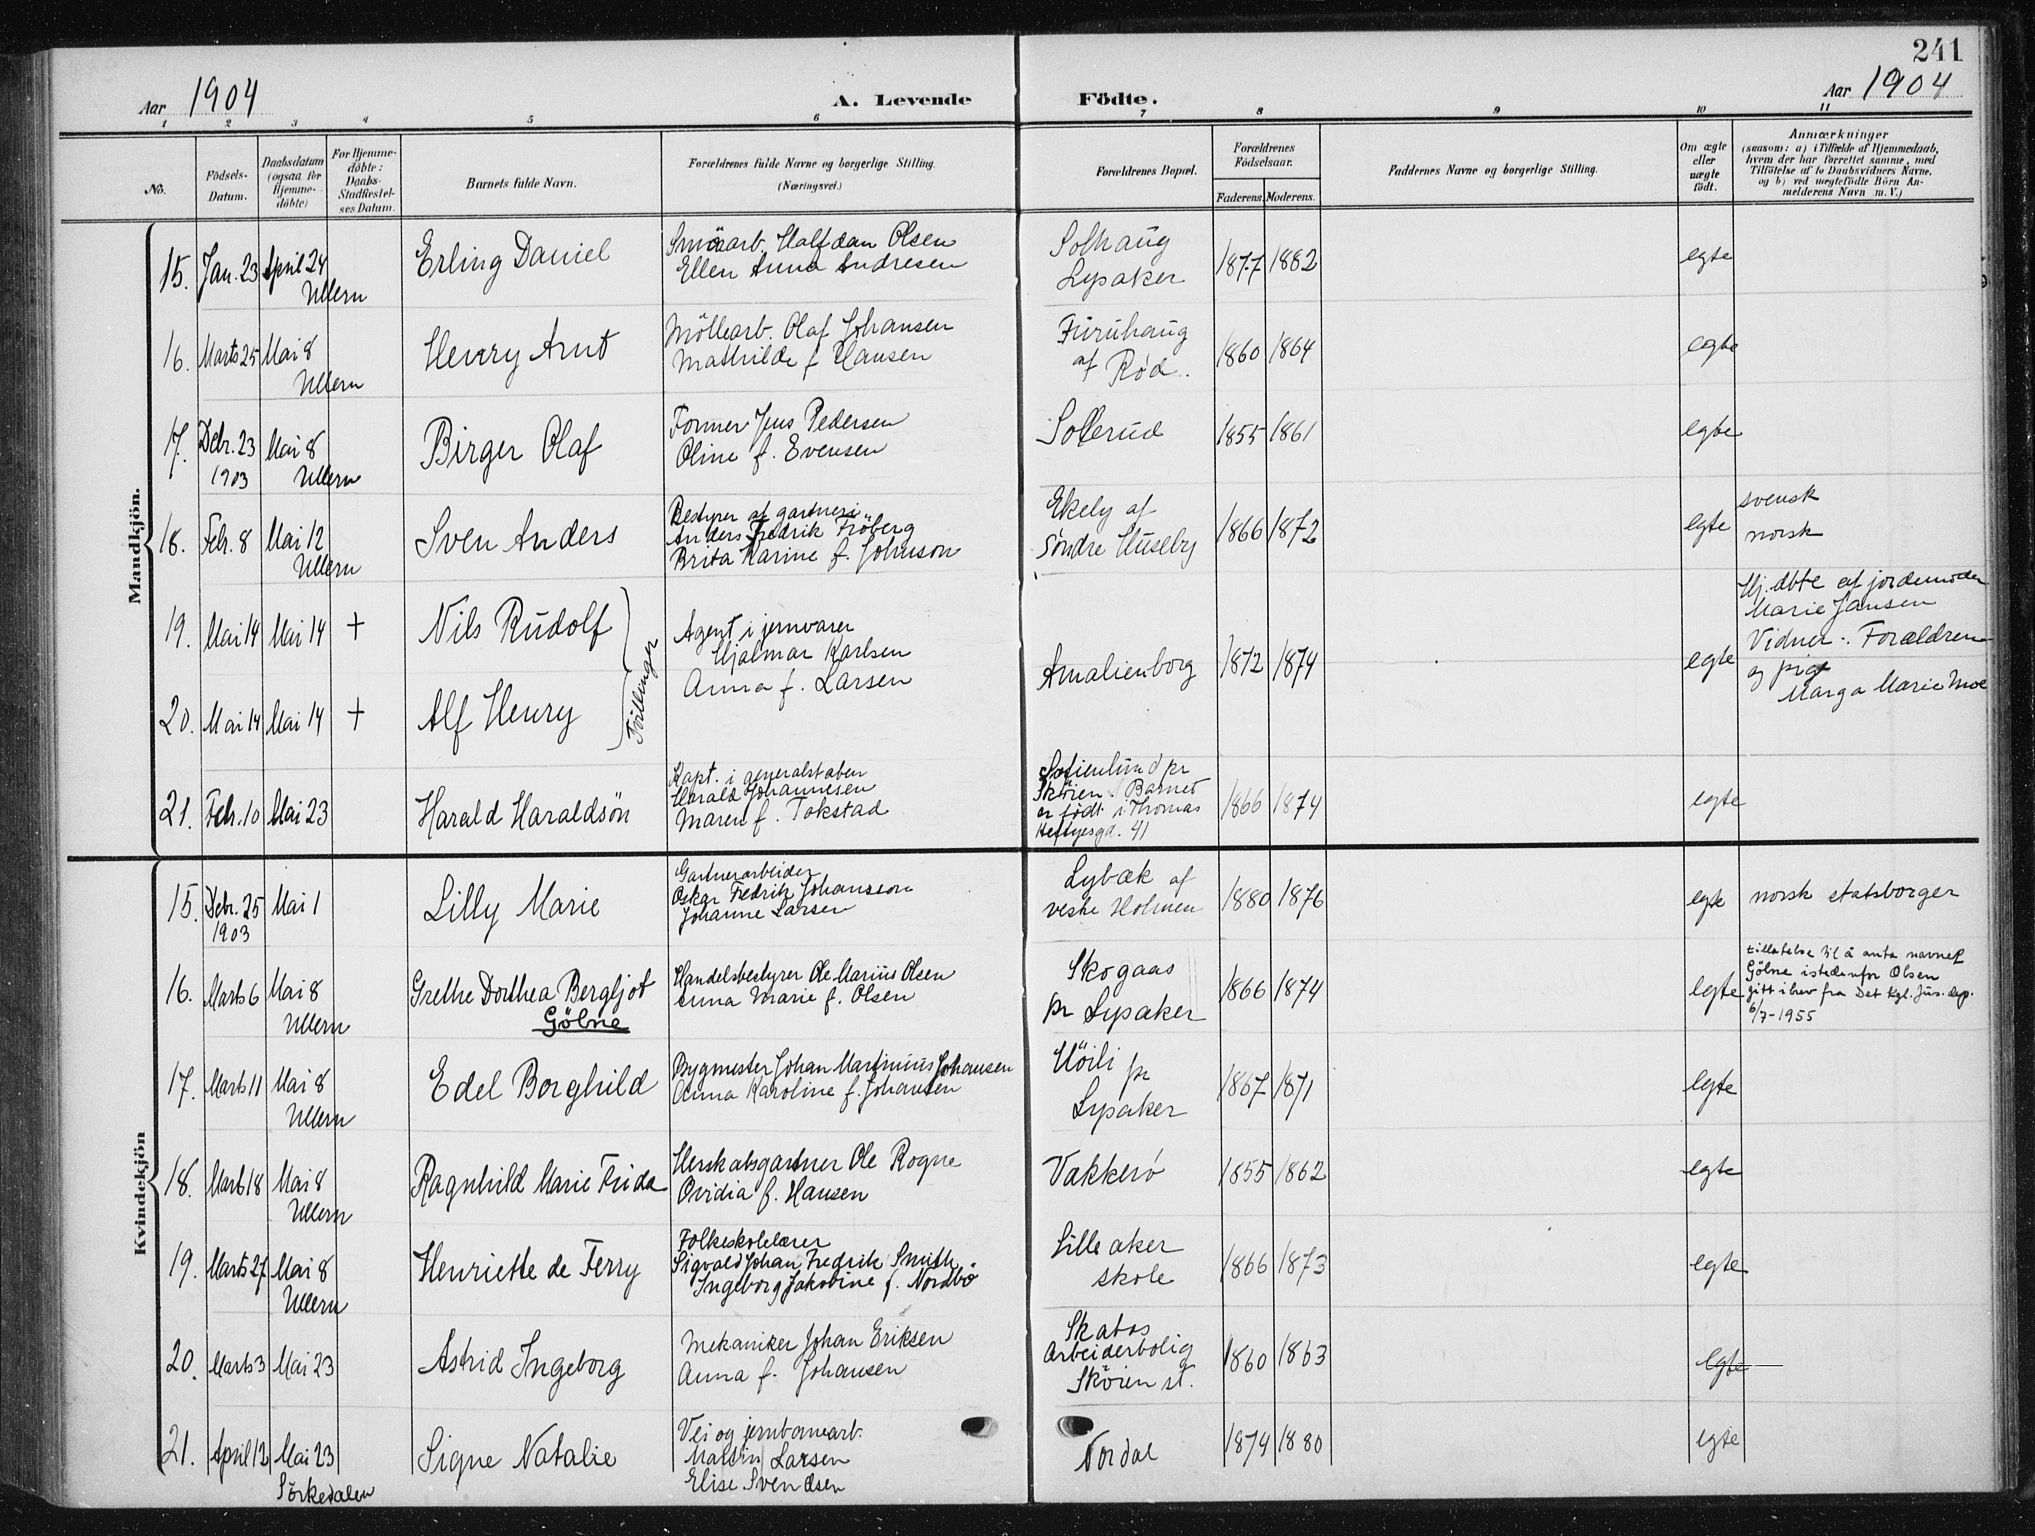 241
Aar 1904
A. Levende Födte.
Aar 1904
1 2 3 4 5 6 7 8 9 10 11
No.
Födsels-
Datum.
Daabsdatum
(ogsaa for
Hjemme-
döbte)
For Hjemme-
döbte:
Daabs-
Stadfæstel-
ses Datum.
Barnets fulde Navn.
Forældrenes fulde Navne og borgerlige Stilling.
(Næringsvei.)
Forældrenes Bopæl.
Forældrenes
Födselsaar.
Faderens. Moderens.
Faddernes Navne og borgerlige Stilling.
Om ægte
eller
uægte
født.
Anmærkninger
(saasom: a) i Tilfælde af Hjemmedaab,
hvem der har forrettet samme, med
Tilföielse af to Daabsvidners Navne,
og b) ved uægtefödte Börn An-
melderens Navn m. V.)
Mandkjön.
15. Jan. 23 April 24
Ullern
Erling Daniel
Smörarb. Halfdan Olsen
Ellen Anna Andresen
Solhaug
Lysaker
1877 1882
egte
16. Marts 25 Mai 8
Ullern
Henry Arnt
Möllearb. Olaf Johansen
Mathilde f. Hansen
Furuhaug
af Röd.
1860 1864
egte
17. Debr. 23 Mai 8
1903 Ullern
Birger Olaf
Former Jens Pedersen
Oline f. Evensen
Sollerud
1855 1861
egte
18. Febr. 8 Mai 12
Ullern
Sven Anders
Bestyrer af gartneri
Anders Fredrik Fröberg
Brita Karine f. Johnson
Ekely af
söndre Huseby
1866 1872
egte
svensk
norsk
19. Mai 14 Mai 14 +
Nils Rudolf
20. Mai 14 Mai 14 +
Alf Henry
Tvillinger
Agent i jernvarer
Hjalmar Karlsen
Anna f. Larsen
Amalienborg
1872 1874
egte
Hj. dbte af jordemoder
Marie Jansen
Vidner: Forældrene
og pige
Marga Marie Moe
21. Febr. 10 Mai 23
Harald Haraldsön
Kapt. i generalstaben
Harald Johannesen
Maren f. Tokstad
Sofienlund pr
Sköien. Barnet
er födt i Thomas
Heftyesgd. 41
1866 1874
egte
Kvindekjön
15. Debr. 25 Mai 1
1903
Lilly Marie
Gartnerarbeider
Oskar Fredrik Johansson
Johanne Larsen
Lybæk af
vestre Holmen
1880 1876
egte
norsk statsborger
16. Marts 6 Mai 8
Ullern
Grethe Dorthea Bergljot
Gölne
Handelsbestyrer Ole Marius Olsen
Anna Marie f. Olsen
Skogaas
pr Lysaker
1866 1874
egte
tillatelse til å anta navnet
Gölne istedenfor Olsen
gitt i brev fra Det Kgl. Jus. dep.
6/7-1955
17. Marts 11 Mai 8
Ullern
Edel Borghild
Bygmester Johan Martinius Johansen
Anna Karoline f. Johansen
Höili pr
Lysaker
1867 1871
egte
18. Marts 18 Mai 8
Ullern
Ragnhild Marie Frida
Herskabsgartner Ole Rogne
Ovidia f. Hansen
Vækkerö
1855 1862
egte
19. Marts 27 Mai 8
Ullern
Henriette de Ferry
Folkeskolelærer
Sigvald Johan Fredrik Smith
Ingeborg Jakobine f. Nordbö
Lilleaker
skole
1866 1873
egte
20. Marts 3 Mai 23
Astrid Ingeborg
Mekaniker Johan Eriksen
Anna f. Johansen
Skabos
Arbeiderbolig
Sköien st.
1860 1863
egte
21. April 12 Mai 23
Sörkedalen
Signe Natalie
Vei og jernbanearb.
Martin Larsen
Elise Svendsen
Nordal
1874 1880
egte